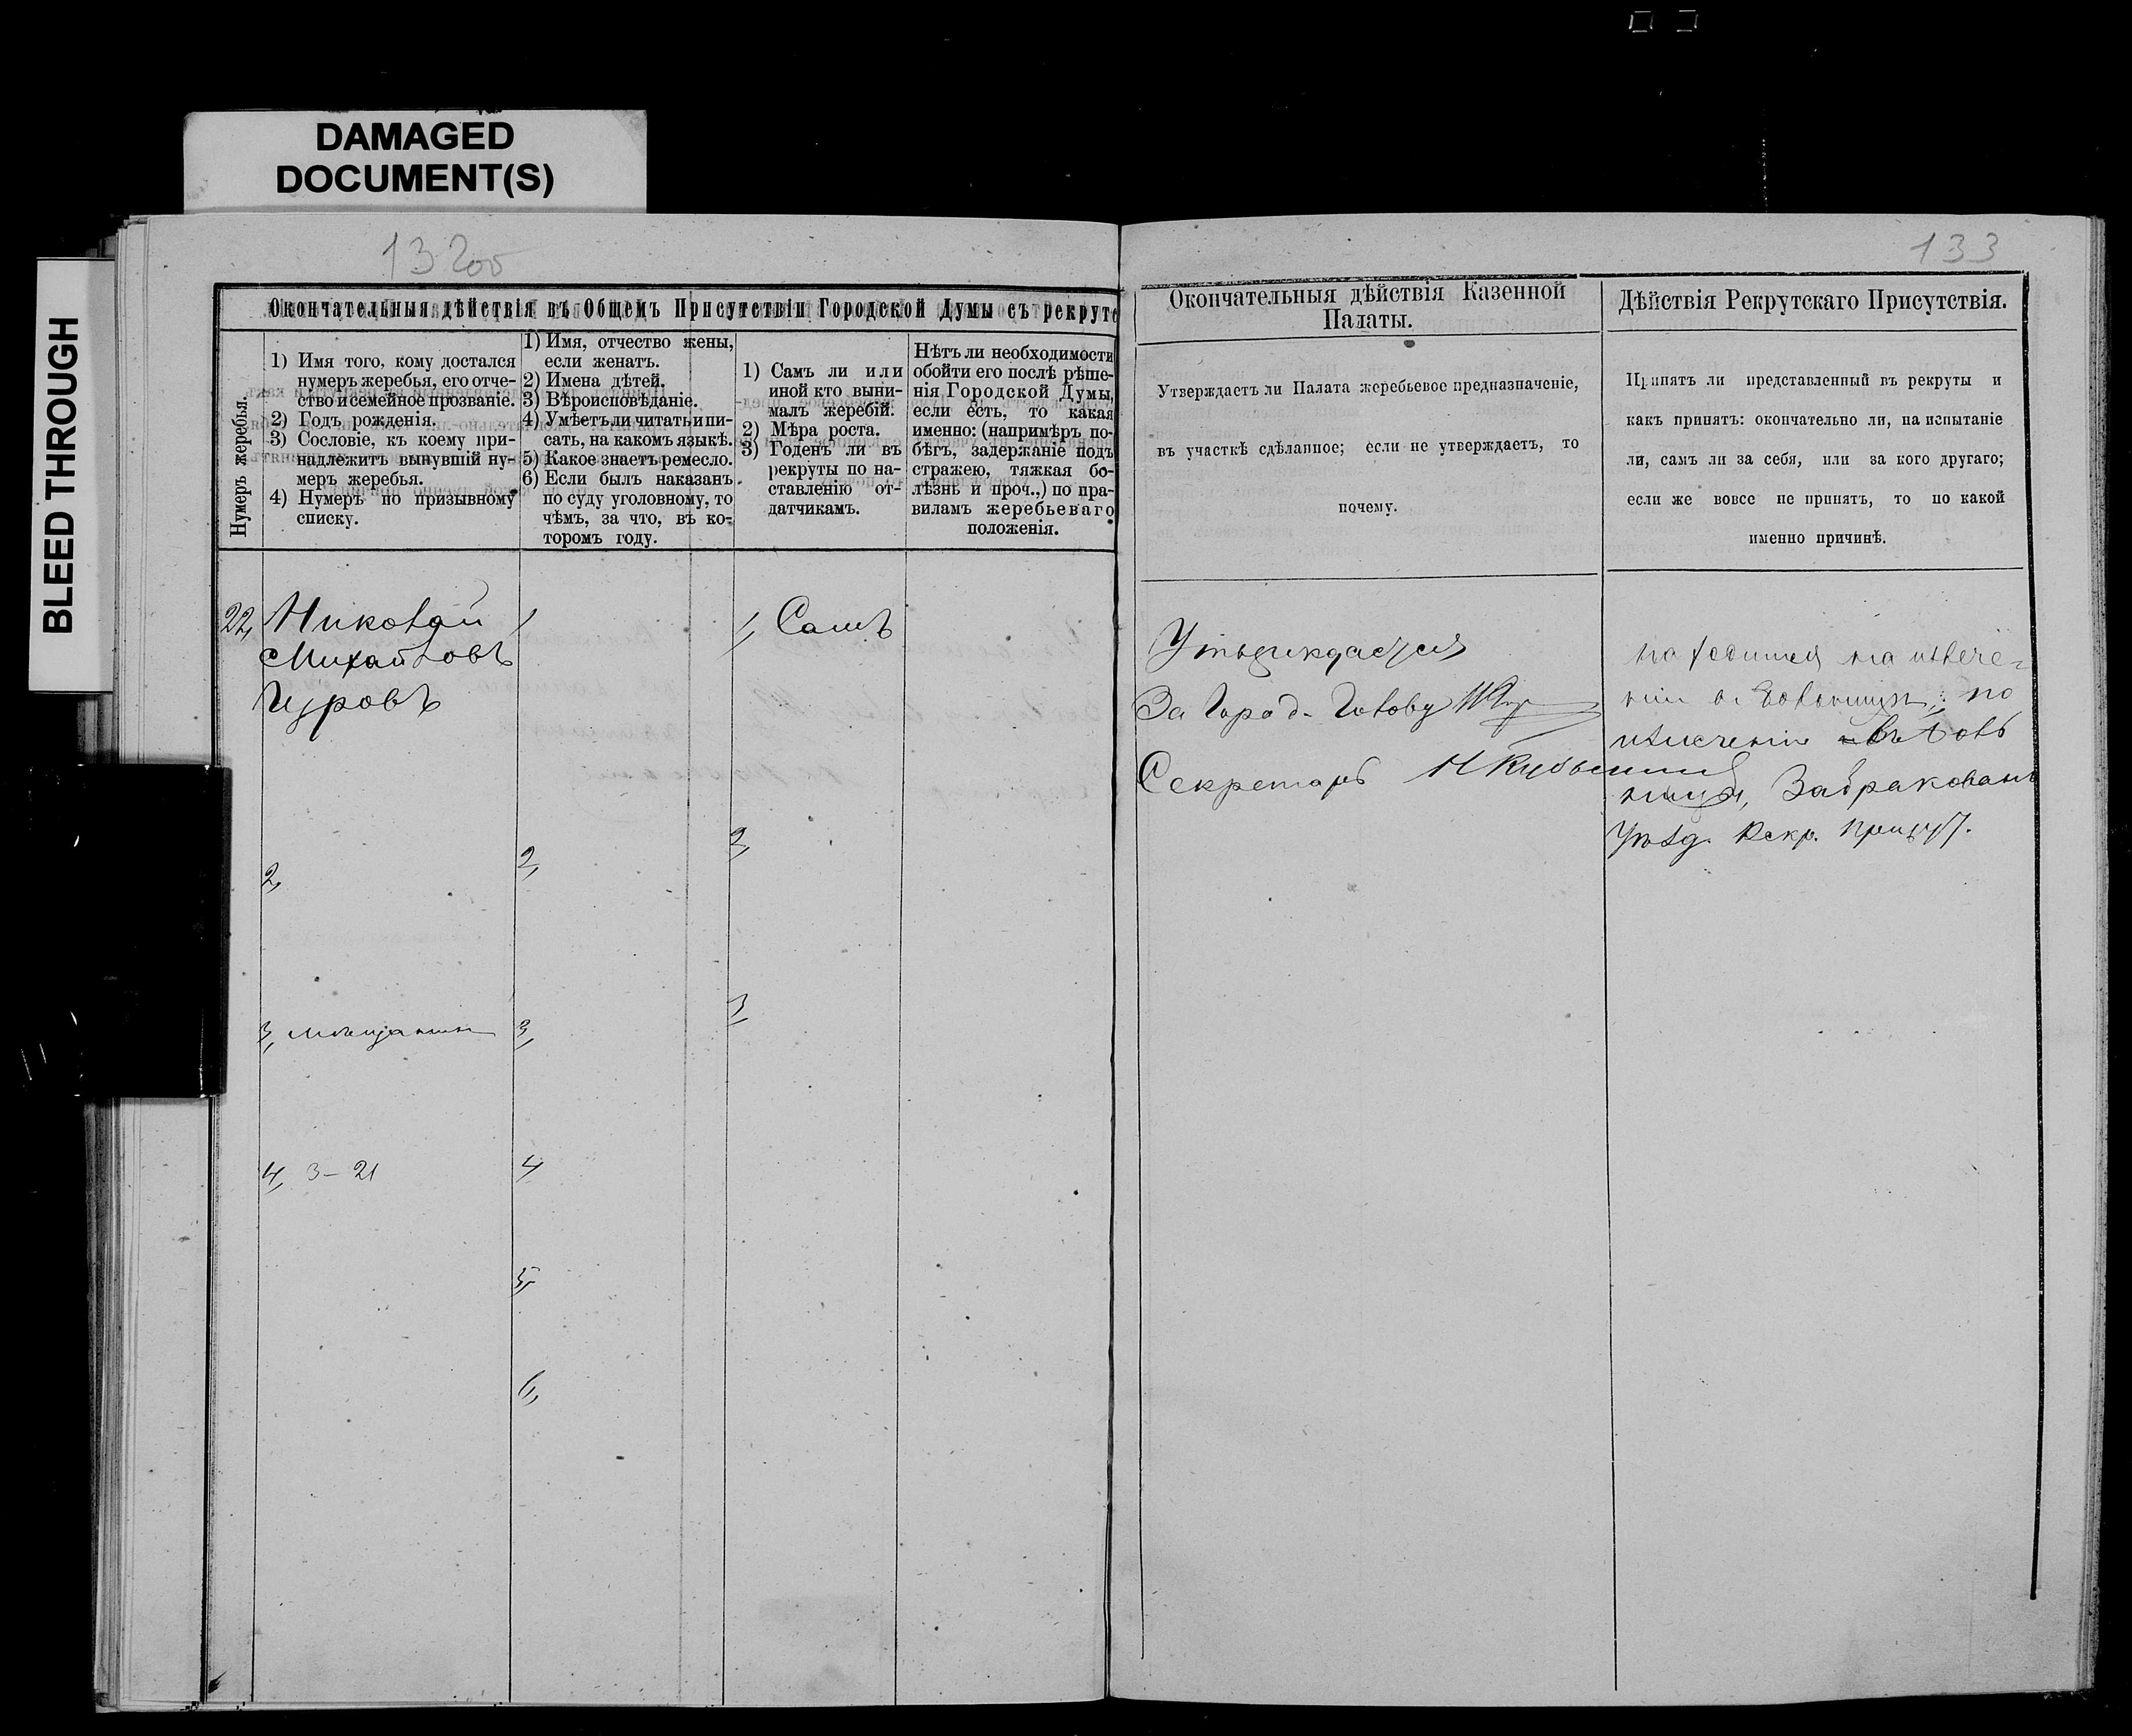 DAMAGED
DOCUMENT(S)
BLEED THROUGH
132об
133
Окончательныя дѣйствія въ Общемъ Присутствіи Городской Думы съ рекруте
Нумеръ жеребья.
1) Имя того, кому достался
нумеръ жеребья, его отче-
ство и семейное прозваніе.
2) Годъ рожденія.
3) Сословіе, къ коему при-
надлежитъ вынувшій ну-
меръ жеребья.
4) Нумеръ по призывному
списку.
1) Имя, отчество жены,
если женатъ.
2) Имена дѣтей.
3) Вѣроисповѣданіе.
4) Умѣетъ ли читать и пи-
сать, на какомъ языкѣ.
5) Какое знаетъ ремесло.
6) Если былъ наказанъ
по суду уголовному, то
чѣмъ, за что, въ ко-
торомъ году.
1) Самъ ли или
иной кто выни-
малъ жеребій.
2) Мѣра роста.
3) Годенъ ли въ
рекруты по на-
ставленію от-
датчикамъ.
Нѣтъ ли необходимости
обойти его послѣ рѣше-
нія Городской Думы,
если есть, то какая
именно: (напримѣръ по-
бѣгъ, задержаніе подъ
стражею, тяжкая бо-
лѣзнь и проч.,) по пра-
виламъ жеребьеваго
положенія.
Окончательныя дѣйствія Казенной
Палаты.
Утверждаетъ ли Палата жеребьевое предназначеніе,
въ участкѣ сдѣланное; если не утверждаетъ, то
почему.
Дѣйствія Рекрутскаго Присутствія.
Принятъ ли представленный въ рекруты и
какъ принятъ: окончательно ли, на испытаніе
ли, самъ ли за себя, или за кого другаго;
если же вовсе не принятъ, то по какой
именно причинѣ.
22, Николай
Михайловъ
Гуровъ
2,
3, мѣщанинъ
4, 3–21
1
2,
3,
4
5,
6,
1, Самъ
2,
3
Утверждается
За Город. Голову
Секретарь
находится на излече-
ніи въ больницѣ; по
излеченіи въ боль
ницѣ, Забракованъ
Уѣзд. Рекр. Присут.